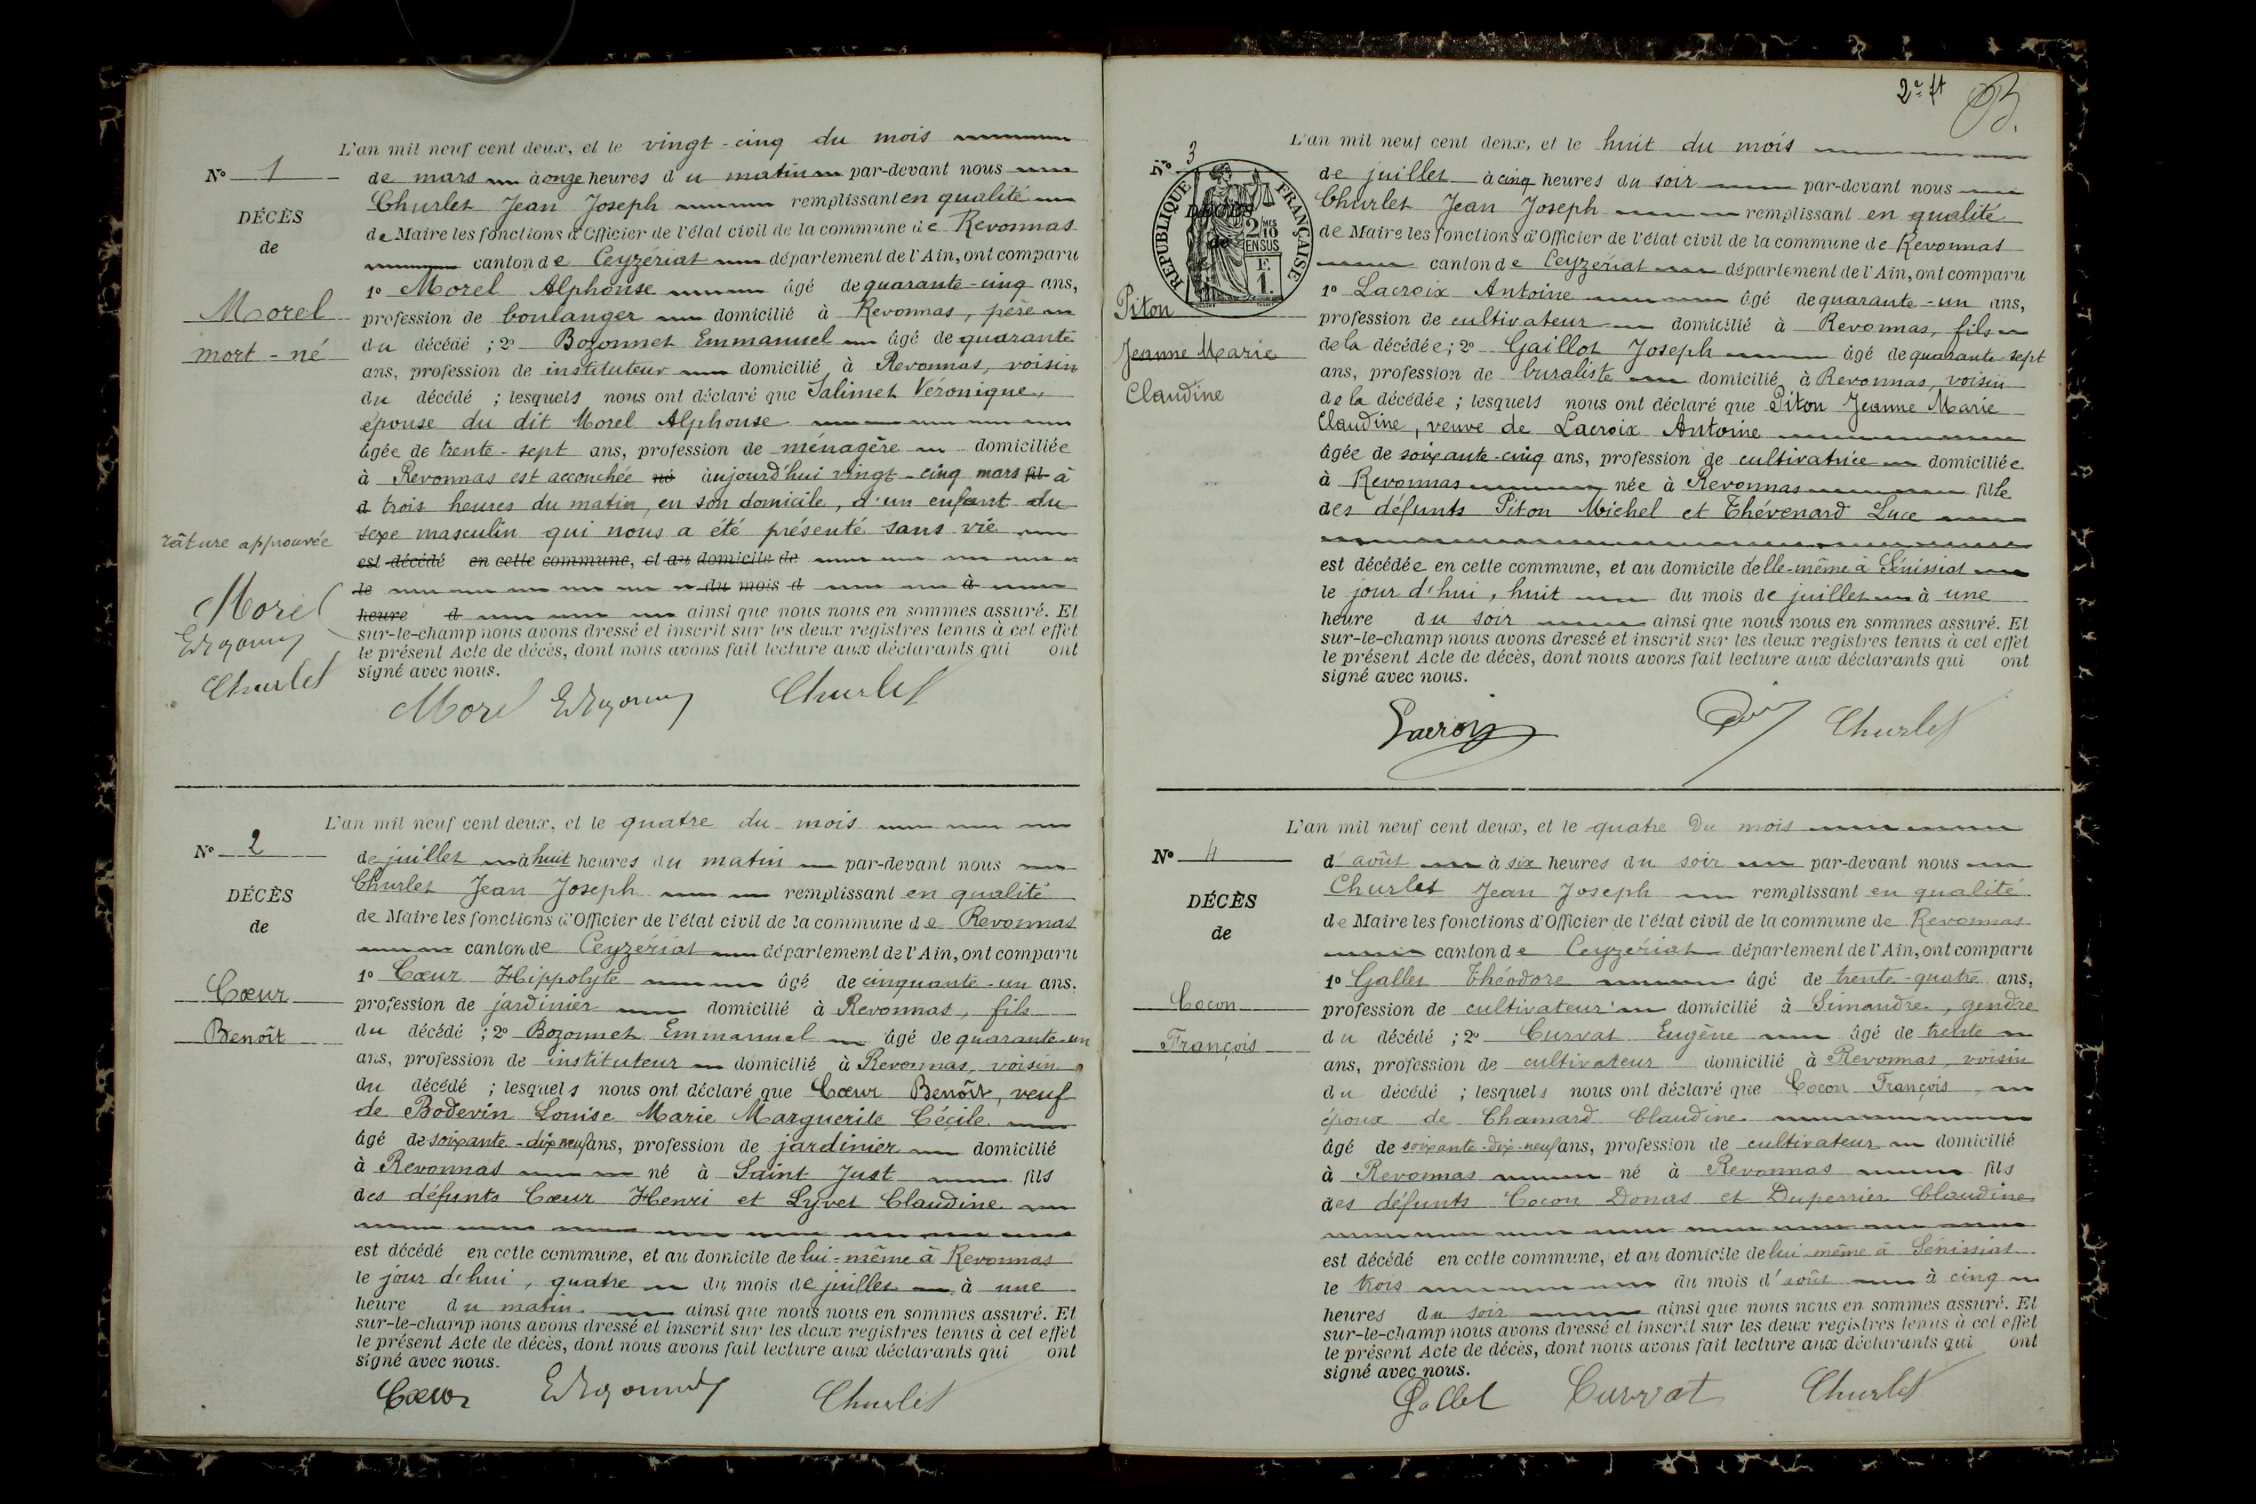 L'an mil neuf cent deux, et le vingt-cinq du mois
No 1
de mars à onze heures du matin par-devant nous
Churlet Jean Joseph remplissant en qualité
DÉCÈS
de Maire les fonctions d'Officier de l'état civil de la commune de Revonnas
de
canton de Ceyzériat département de l'Ain, ont comparu
1o Morel Alphonse âgé de quarante-cinq ans,
Morel
profession de boulanger domicilié à Revonnas, père
mort-né
du décédé ; 2o Bozonnet Emmanuel âgé de quarante
ans, profession de instituteur domicilié à Revonnas, voisin
du décédé ; lesquels nous ont déclaré que Salimet Véronique,
épouse du dit Morel Alphonse
âgée de trente-sept ans, profession de ménagère domiciliée
à Revonnas est accouchée né aujourd'hui vingt-cinq mars fil à
d trois heures du matin, en son domicile, d'un enfant du
sexe masculin qui nous a été présenté sans vie
râture approuvée
est décédé en cette commune, et au domicile de
le du mois d à
heure d ainsi que nous nous en sommes assuré. Et
sur-le-champ nous avons dressé et inscrit sur les deux registres tenus à cet effet
le présent Acte de décès, dont nous avons fait lecture aux déclarants qui ont
signé avec nous.
Morel
Churlet
Morel Churlet
L'an mil neuf cent deux, et le quatre du mois
No 2
de juillet à huit heures du matin par-devant nous
Churlet Jean Joseph remplissant en qualité
DÉCÈS
de Maire les fonctions d'Officier de l'état civil de la commune de Revonnas
de
canton de Ceyzériat département de l'Ain, ont comparu
1o Cœur Hippolyte âgé de cinquante-un ans,
Cœur
profession de jardinier domicilié à Revonnas, fils
Benoît
du décédé ; 2o Bozonnet Emmanuel âgé de quarante-un
ans, profession de instituteur domicilié à Revonnas, voisin
du décédé ; lesquels nous ont déclaré que Cœur Benoît, veuf
de Bodevin Louise Marie Marguerite Cécile
âgé de soixante-dix neuf ans, profession de jardinier domicilié
à Revonnas né à Saint Just fils
des défunts Cœur Henri et Lyvet Claudine
est décédé en cette commune, et au domicile de lui-même à Revonnas
le jour d'hui, quatre du mois de juillet à une
heure du matin ainsi que nous nous en sommes assuré. Et
sur-le-champ nous avons dressé et inscrit sur les deux registres tenus à cet effet
le présent Acte de décès, dont nous avons fait lecture aux déclarants qui ont
signé avec nous.
Cœur Churlet
2e ft
L'an mil neuf cent deux, et le huit du mois
No 3
de juillet à cinq heures du soir par-devant nous
Churlet Jean Joseph remplissant en qualité
DÉCÈS
RÉPUBLIQUE FRANÇAISE
2/10 EN SUS
F. 1.
de Maire les fonctions d'Officier de l'état civil de la commune de Revonnas
de
canton de Ceyzériat département de l'Ain, ont comparu
1o Lacroix Antoine âgé de quarante-un ans,
Piton
profession de cultivateur domicilié à Revonnas, fils
Jeanne Marie
de la décédée ; 2o Gaillot Joseph âgé de quarante-sept
ans, profession de buraliste domicilié à Revonnas, voisin
Claudine
de la décédée ; lesquels nous ont déclaré que Piton Jeanne Marie
Claudine, veuve de Lacroix Antoine
âgée de soixante-cinq ans, profession de cultivatrice domiciliée
à Revonnas née à Revonnas fille
des défunts Piton Michel et Thévenard Luce
est décédée en cette commune, et au domicile d'elle-même à Sénissiat
le jour d'hui, huit du mois de juillet à une
heure du soir ainsi que nous nous en sommes assuré. Et
sur-le-champ nous avons dressé et inscrit sur les deux registres tenus à cet effet
le présent Acte de décès, dont nous avons fait lecture aux déclarants qui ont
signé avec nous.
Lacroix Churlet
L'an mil neuf cent deux, et le quatre du mois
No 4
d'août à six heures du soir par-devant nous
Churlet Jean Joseph remplissant en qualité
DÉCÈS
de Maire les fonctions d'Officier de l'état civil de la commune de Revonnas
de
canton de Ceyzériat département de l'Ain, ont comparu
1o Gallet Théodore âgé de trente-quatre ans,
Cocon
profession de cultivateur domicilié à Simandre, gendre
François
du décédé ; 2o Curvat Eugène âgé de trente
ans, profession de cultivateur domicilié à Revonnas, voisin
du décédé ; lesquels nous ont déclaré que Cocon François,
époux de Chamard Claudine
âgé de soixante-dix-neuf ans, profession de cultivateur domicilié
à Revonnas né à Revonnas fils
des défunts Cocon Donat et Duperrier Claudine
est décédé en cette commune, et au domicile de lui-même à Sénissiat
le trois du mois d'août à cinq
heures du soir ainsi que nous nous en sommes assuré. Et
sur-le-champ nous avons dressé et inscrit sur les deux registres tenus à cet effet
le présent Acte de décès, dont nous avons fait lecture aux déclarants qui ont
signé avec nous.
Gallet Curvat Churlet